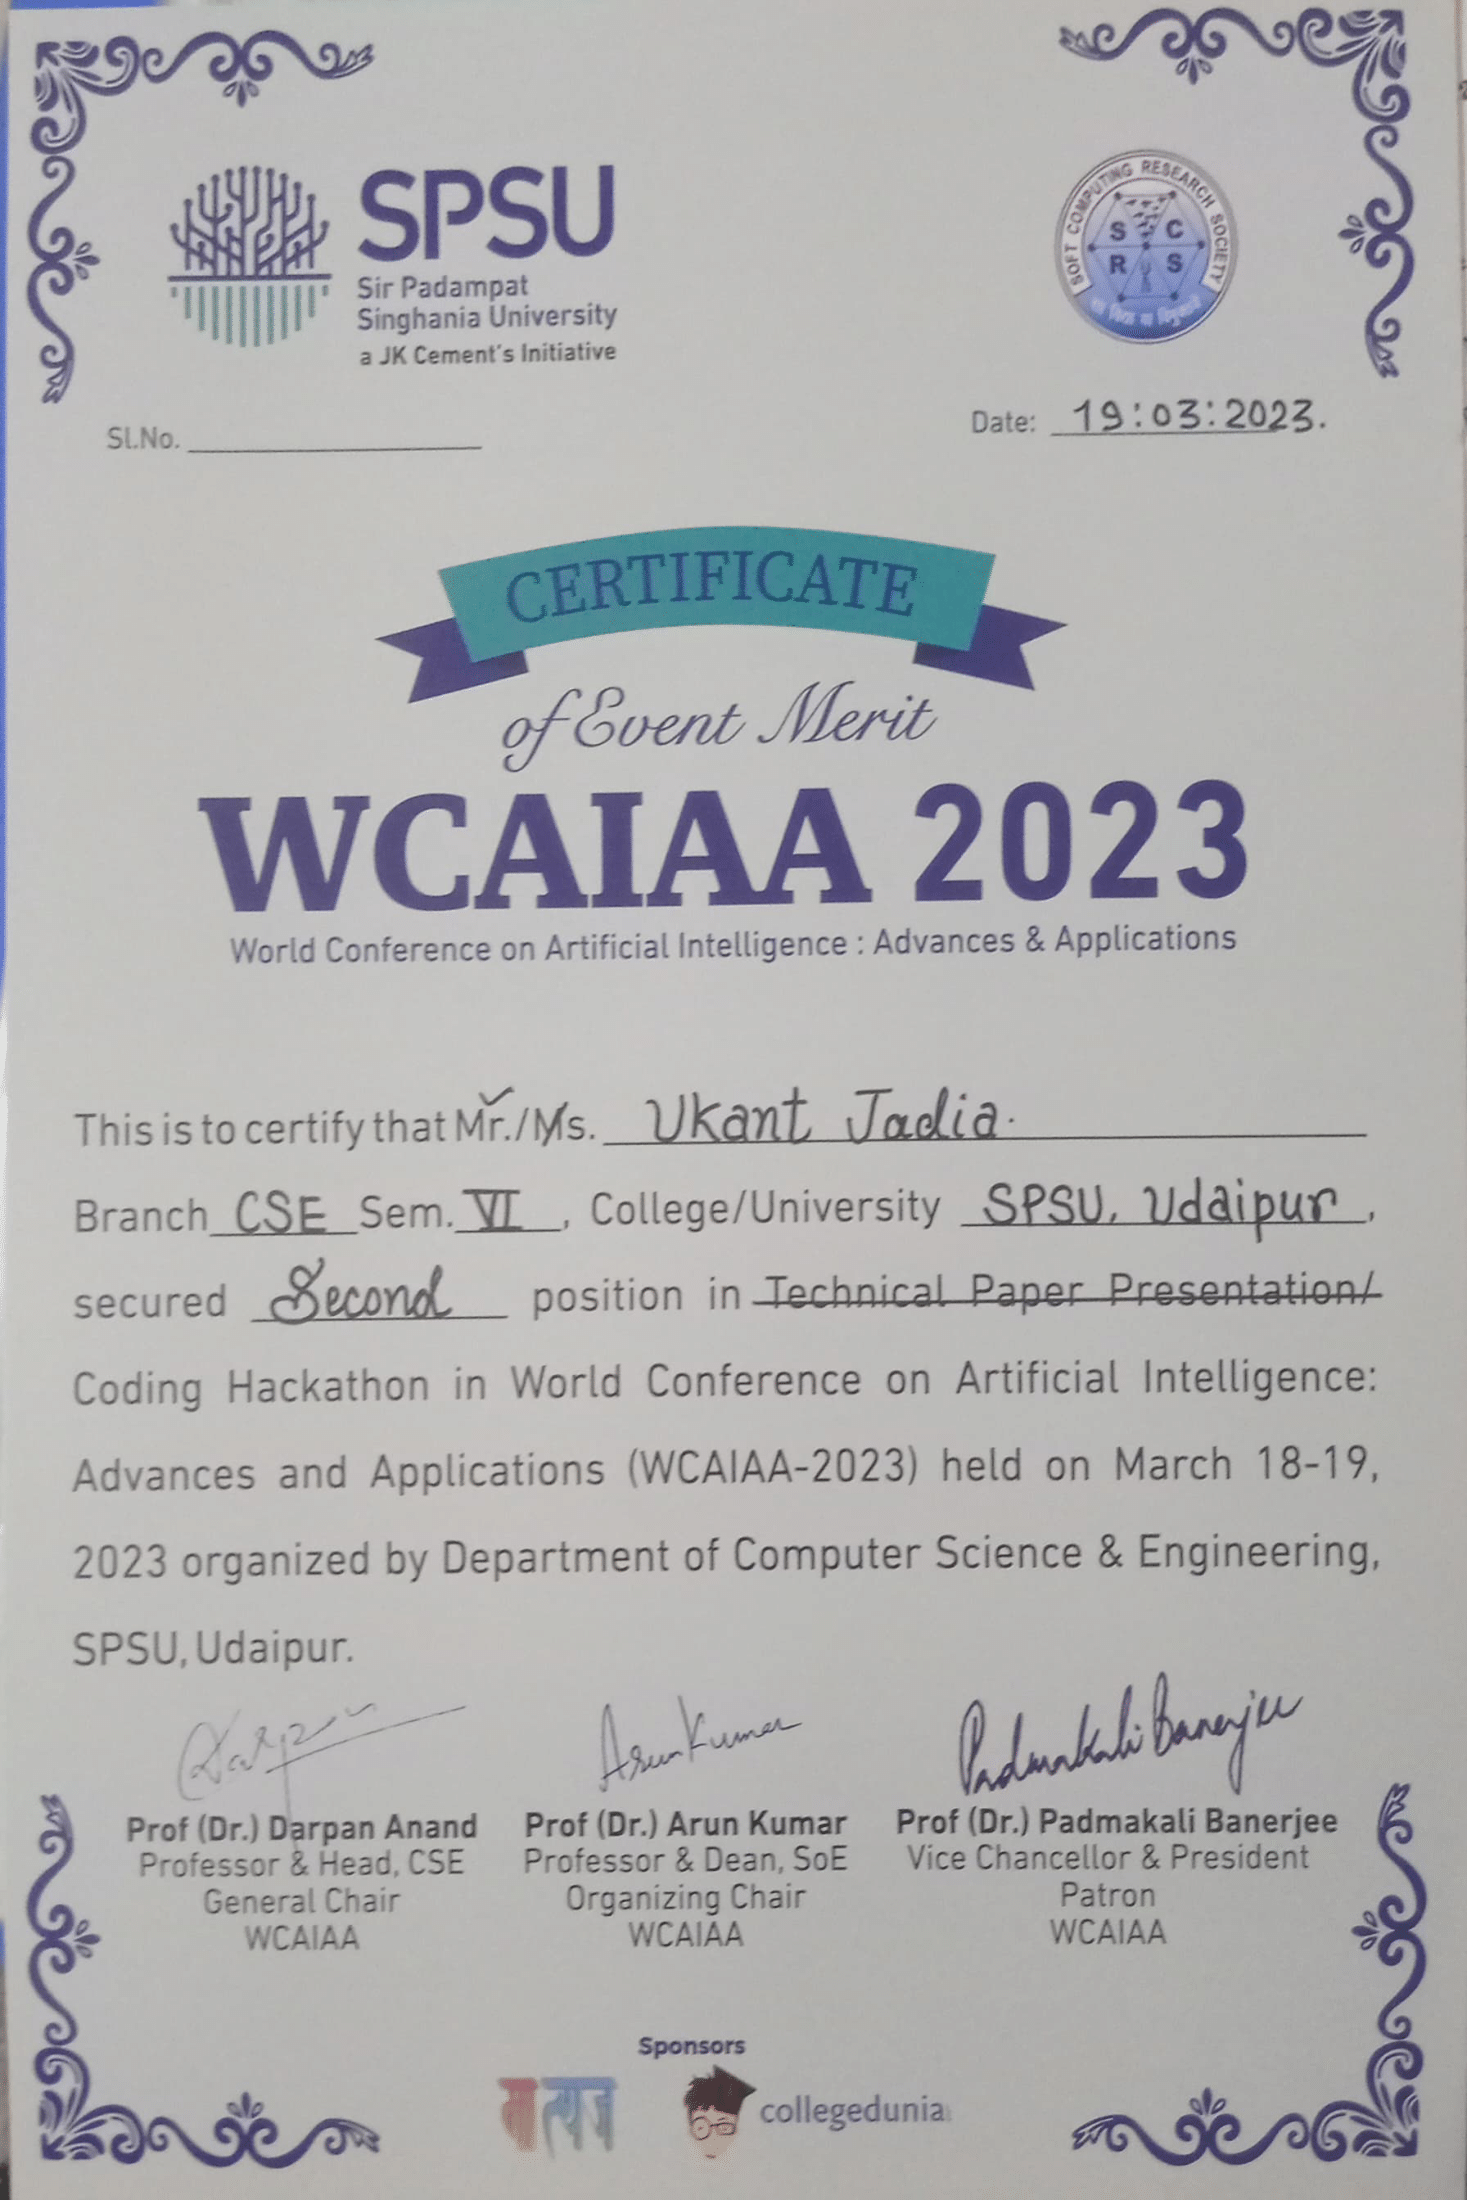 SPSU
Sir Padampat
Singhania University
a JK Cement's Initiative
SOFT COMPUTING RESEARCH SOCIETY
S C
R S
Sl.No.
Date: 19:03:2023.
CERTIFICATE
of Event Merit
WCAIAA 2023
World Conference on Artificial Intelligence : Advances & Applications
This is to certify that Mr./Ms. Ukant Jadia.
Branch CSE Sem. VI, College/University SPSU, Udaipur,
secured Second position in Technical Paper Presentation/
Coding Hackathon in World Conference on Artificial Intelligence:
Advances and Applications (WCAIAA-2023) held on March 18-19,
2023 organized by Department of Computer Science & Engineering,
SPSU, Udaipur.
Darpan
Arun Kumar
Padmakali Banerjee
Prof (Dr.) Darpan Anand
Professor & Head, CSE
General Chair
WCAIAA
Prof (Dr.) Arun Kumar
Professor & Dean, SoE
Organizing Chair
WCAIAA
Prof (Dr.) Padmakali Banerjee
Vice Chancellor & President
Patron
WCAIAA
Sponsors
collegedunia